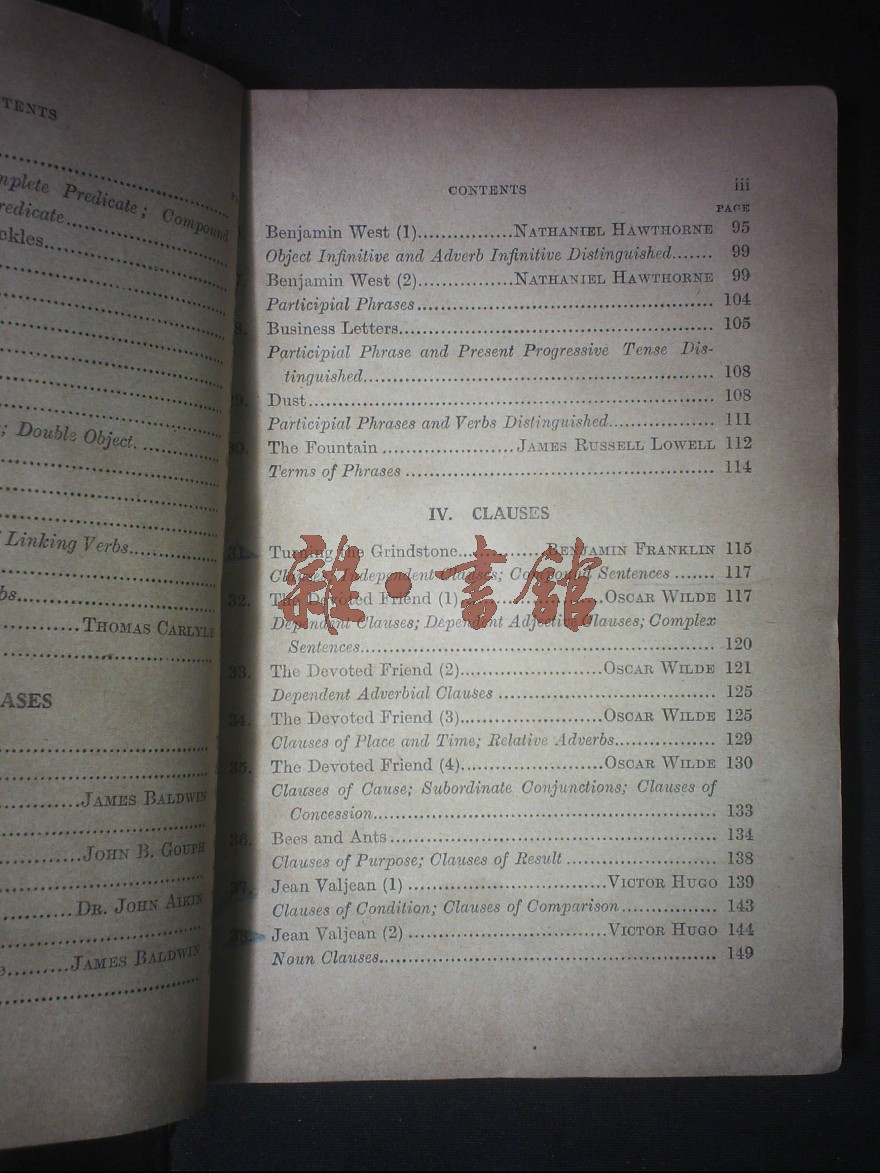 TENTS
mplete Predicate; Compound
redicate
ckles
; Double Object.
Linking Verbs
bs
THOMAS CARLYLE
ASES
JAMES BALDWIN
JOHN B. GOUGH
DR. JOHN AIKIN
JAMES BALDWIN
CONTENTS iii
PAGE
Benjamin West (1)................NATHANIEL HAWTHORNE 95
Object Infinitive and Adverb Infinitive Distinguished....... 99
Benjamin West (2)................NATHANIEL HAWTHORNE 99
Participial Phrases.................................................. 104
Business Letters..................................................... 105
Participial Phrase and Present Progressive Tense Dis-
tinguished........................................................... 108
29. Dust.............................................................. 108
Participial Phrases and Verbs Distinguished.................. 111
30. The Fountain......................JAMES RUSSELL LOWELL 112
Terms of Phrases .................................................... 114
IV. CLAUSES
31. Turning the Grindstone...............BENJAMIN FRANKLIN 115
Clauses; Independent Clauses; Compound Sentences ....... 117
32. The Devoted Friend (1)........................OSCAR WILDE 117
Dependent Clauses; Dependent Adjective Clauses; Complex
Sentences............................................................ 120
33. The Devoted Friend (2)........................OSCAR WILDE 121
Dependent Adverbial Clauses ..................................... 125
34. The Devoted Friend (3)........................OSCAR WILDE 125
Clauses of Place and Time; Relative Adverbs................. 129
35. The Devoted Friend (4)........................OSCAR WILDE 130
Clauses of Cause; Subordinate Conjunctions; Clauses of
Concession........................................................... 133
36. Bees and Ants....................................................... 134
Clauses of Purpose; Clauses of Result ......................... 138
37. Jean Valjean (1) .................................VICTOR HUGO 139
Clauses of Condition; Clauses of Comparison................ 143
38. Jean Valjean (2) .................................VICTOR HUGO 144
Noun Clauses......................................................... 149
雜·書館